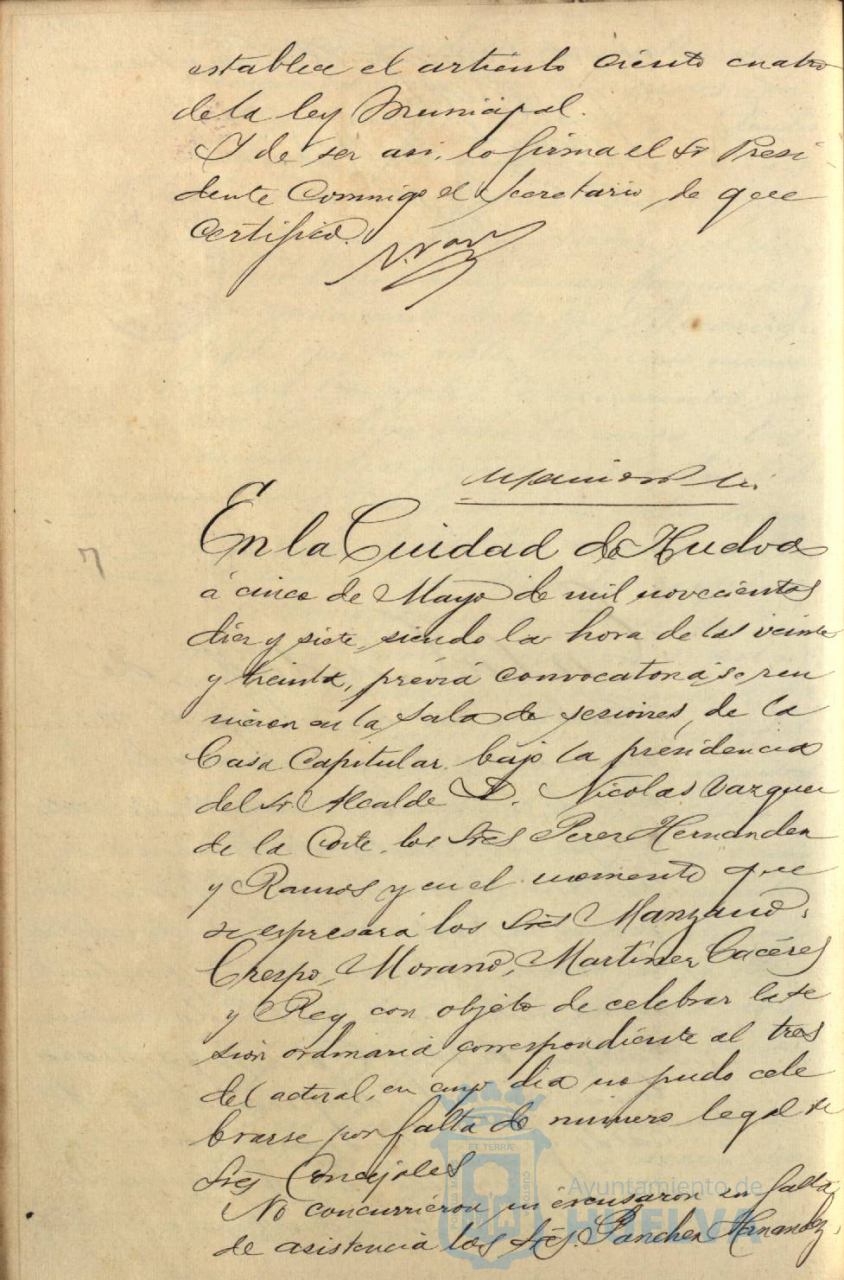 establece el artículo ciento cuatro
de la ley Municipal.
Y de ser asi, lo firma el Sr Presi
dente Conmigo el Secretario de que
Certifico.
En la Cuidad de Huelva
á cinco de Mayo de mil novecientos
diez y siete, siendo la hora de las veinte
y treinta, prévia convocatoria se reu
nieron en la Sala de sesiones, de la
Casa Capitular bajo la presidencia
del Sr Alcalde D. Nicolas Vazquez
de la Corte, los Sres Perez Hernandez
y Ramos y en el momento que
se espresará los Sres Manzano,
Crespo, Morano, Martinez Cacéres
y Rey con objeto de celebrar la se
sión ordinaria correspondiente al tres
del actual, en cuyo dia no pudo cele
brarse por falta de número legal de
Sres Concejales
No concurrieron ni éxcusaron su falta
de asistencia los Sres. Sanchez Hernandez,
Ayuntamiento de
HUELVA